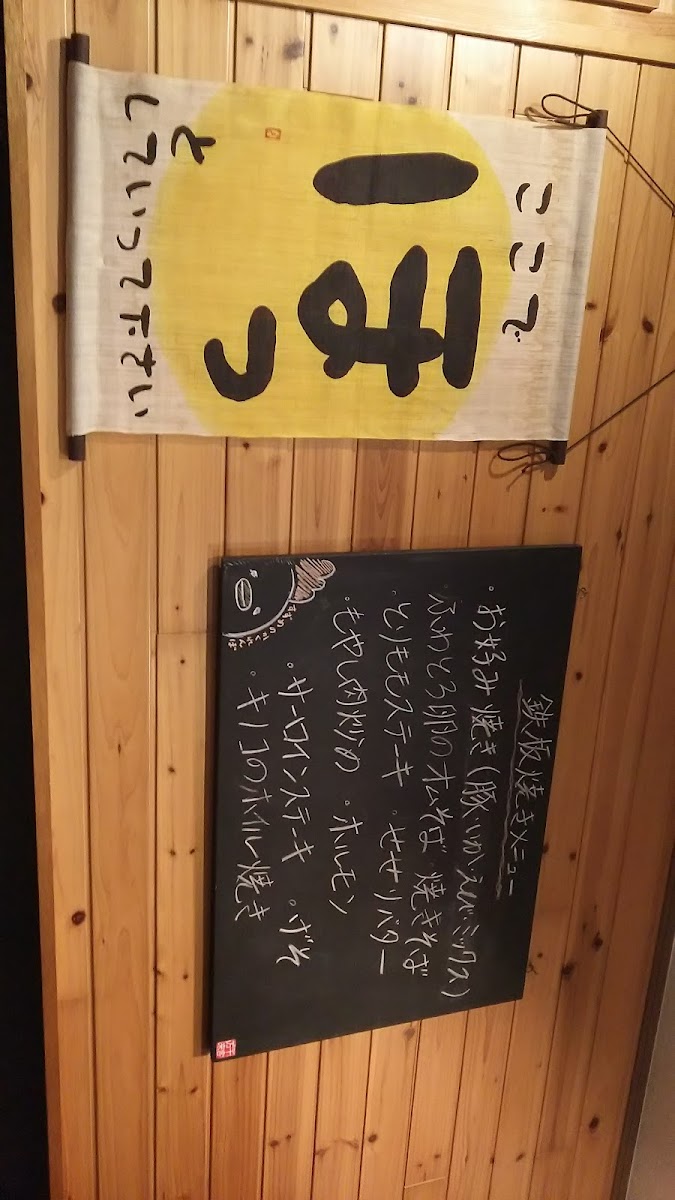 ここで
ほっ
と
していって下さい
鉄板焼きメニュー
・お好み焼き(豚、いか、えび、ミックス)
・ふわとろ卵のオムそば・焼きそば
・とりももステーキ ・せせりバター
・もやし肉炒め ・ホルモン
・サーロインステーキ ・げそ
・キノコのホイル焼き